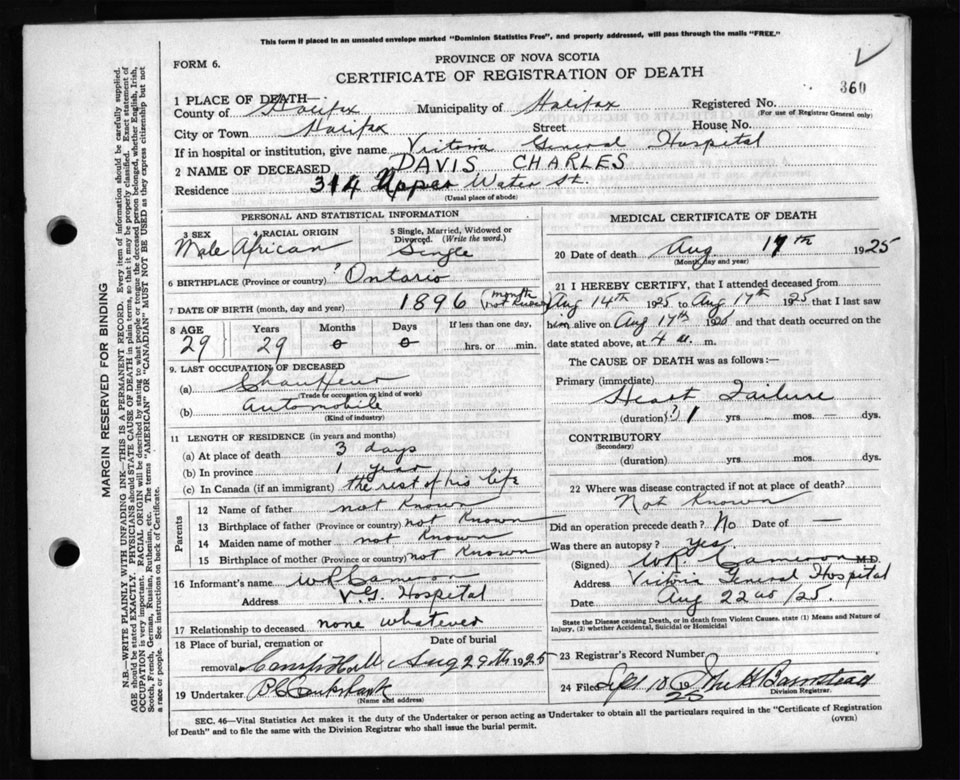 This form if placed in an unsealed envelope marked "Dominion Statistics Free", and properly addressed, will pass through the mails "FREE."
PROVINCE OF NOVA SCOTIA
FORM 6.
CERTIFICATE OF REGISTRATION OF DEATH
360
1 PLACE OF DEATH—
County of Halifax Municipality of Halifax Registered No.
(For use of Registrar General only)
City or Town Halifax Street House No.
If in hospital or institution, give name Victoria General Hospital
2 NAME OF DECEASED DAVIS CHARLES
Residence 314 Upper Water St.
(Usual place of abode)
PERSONAL AND STATISTICAL INFORMATION
3 SEX 4 RACIAL ORIGIN 5 Single, Married, Widowed or Divorced. (Write the word.)
Male African Single
6 BIRTHPLACE (Province or country) ? Ontario
7 DATE OF BIRTH (month, day and year) 1896 (month not known)
8 AGE Years Months Days If less than one day,
29 29 0 0 hrs. or min.
9. LAST OCCUPATION OF DECEASED
(a) Chauffeur
(Trade or occupation or kind of work)
(b) Automobile
(Kind of industry)
11 LENGTH OF RESIDENCE (in years and months)
(a) At place of death 3 days
(b) In province 1 year
(c) In Canada (if an immigrant) the rest of his life
Parents
12 Name of father not Known
13 Birthplace of father (Province or country) not Known
14 Maiden name of mother not Known
15 Birthplace of mother (Province or country) not Known
16 Informant's name WR Cameron
Address V.G. Hospital
17 Relationship to deceased none whatever
18 Place of burial, cremation or Date of burial
removal Camp Hill Aug 29th 1925
19 Undertaker
(Name and address)
MEDICAL CERTIFICATE OF DEATH
20 Date of death Aug 17th 1925
(Month, day and year)
21 I HEREBY CERTIFY, that I attended deceased from
Aug 14th 1925 to Aug 17th 1925 that I last saw
him alive on Aug 17th 1925 and that death occurred on the
date stated above, at 4 a. m.
The CAUSE OF DEATH was as follows:—
Primary (immediate)
Heart Failure
(duration) ? 1 yrs — mos. — dys.
CONTRIBUTORY
(Secondary)
(duration) yrs. mos. dys.
22 Where was disease contracted if not at place of death?
Not Known
Did an operation precede death? No Date of —
Was there an autopsy? yes.
(Signed) WR Cameron M.D.
Address Victoria General Hospital
Date Aug 22nd /25.
State the Disease causing Death, or in death from Violent Causes, state (1) Means and Nature of Injury, (2) whether Accidental, Suicidal or Homicidal
23 Registrar's Record Number
24 Filed Sept 10 25 Barnstead
Division Registrar.
SEC. 46—Vital Statistics Act makes it the duty of the Undertaker or person acting as Undertaker to obtain all the particulars required in the "Certificate of Registration
of Death" and to file the same with the Division Registrar who shall issue the burial permit.
(OVER)
MARGIN RESERVED FOR BINDING
N.B.—WRITE PLAINLY WITH UNFADING INK—THIS IS A PERMANENT RECORD. Every item of information should be carefully supplied.
AGE should be stated EXACTLY. PHYSICIANS should STATE CAUSE OF DEATH in plain terms, so that it may be properly classified. Exact statement of
OCCUPATION is very important. RACIAL ORIGIN will be described by stating to what people or tongue the deceased person belonged, whether English, Irish,
Scotch, French, German, Russian, Ruthenian, etc. The terms "AMERICAN" OR "CANADIAN" MUST NOT BE USED as they express citizenship but not
a race or people. See instructions on back of Certificate.